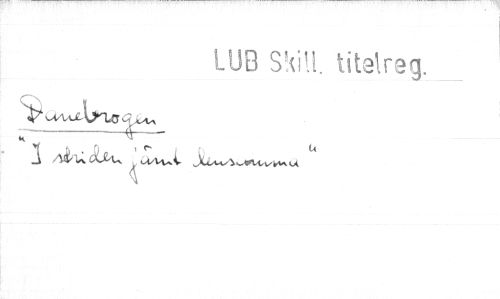 LUB Skill. titelreg.
Danebrogen
"I striden jämt